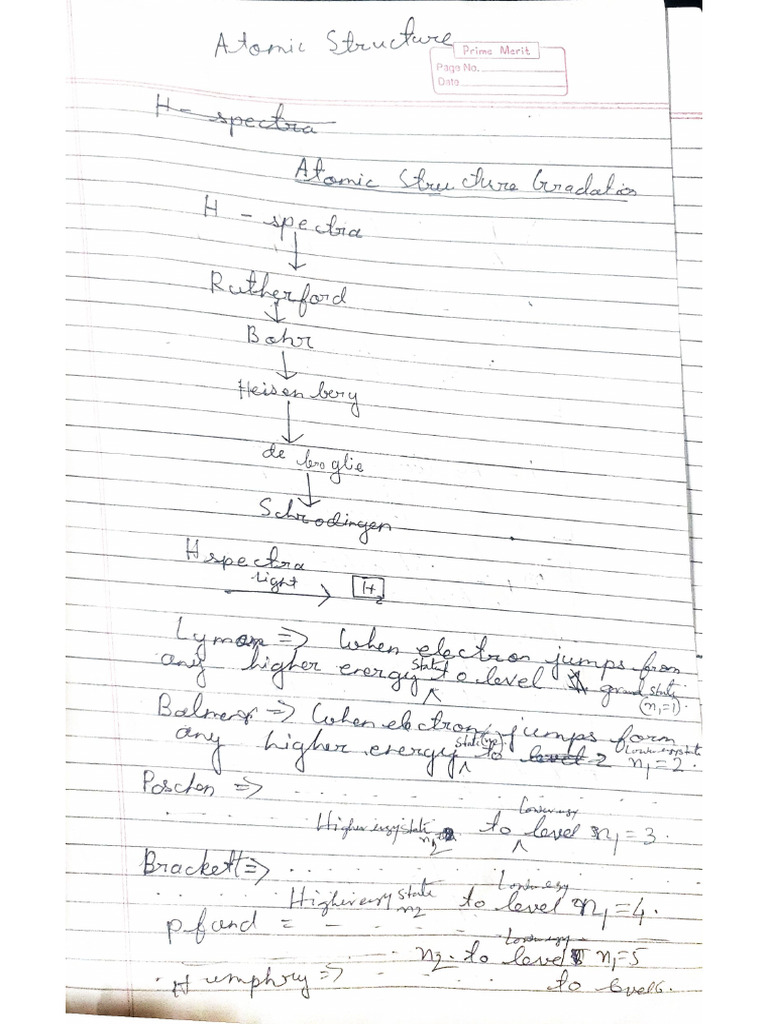 Atomic Structure
Prime Merit
Page No.
Date
H - spectra
Atomic Structure Gradation
H - spectra
Rutherford
Bohr
Heisenberg
de broglie
Schrodingen
H spectra
Light
H2
Lyman => When electron jumps from
any higher energy state to level ground state
(n1=1).
Balmer => When electron jumps form
any higher energy state (n2) to level 2 Lower energy state n1 = 2.
Paschen =>
Higher enrgy state n2 to Lower enrgy level n1 = 3.
Brackett =>
Higher enrgy state n2 to Lower enrgy level n1 = 4.
pfund = -
n2. to Lower enrgy level n1 = 5
Humphry => to level 6.